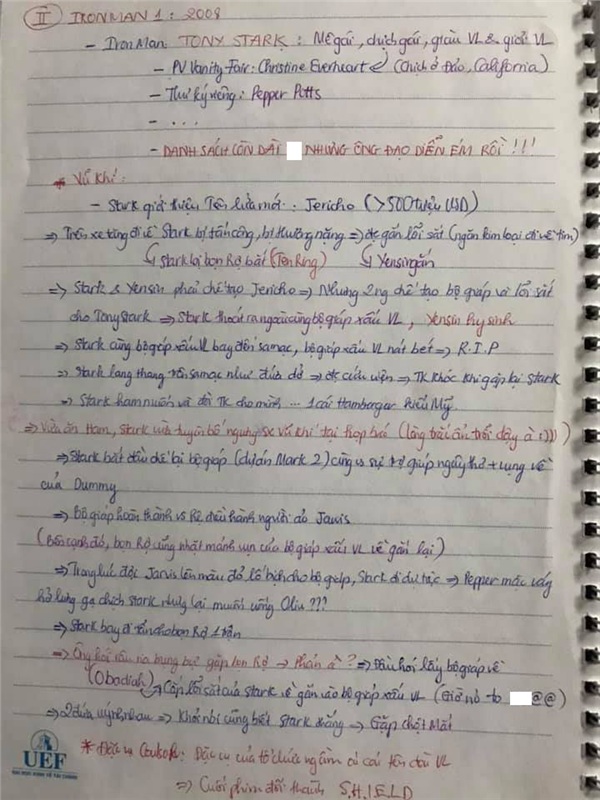 II IRONMAN 1 : 2008
- IronMan TONY STARK : Mê gái, chịch gái, giàu VL & giỏi VL
- PV Vanity Fair : Christine Everheart (Chịch ở Đảo, California)
- Thư ký riêng : Pepper Potts
- . . .
- DANH SÁCH CÒN DÀI NHƯNG ÔNG ĐẠO DIỄN ÉM RỒI !!!
* Vũ Khí :
- Stark giới thiệu Tên lửa mới : Jericho (>500 triệu USD)
⇒ Trên xe tăng đi về Stark bị tấn công, bị thương nặng ⇒ đc gắn lõi sắt (ngăn kim loại đi về tim)
Stark bị bọn Rợ bắt (Ten Ring) Yensin gắn
⇒ Stark & Yensin phải chế tạo Jericho ⇒ Nhưng 2 ng chế tạo bộ giáp và lõi sắt
cho Tony Stark ⇒ Stark thoát ra ngoài cùng bộ giáp xấu VL, Yensin hy sinh
⇒ Stark cùng bộ giáp xấu VL bay đến sa mạc, bộ giáp xấu VL nát bét ⇒ R.I.P
⇒ Stark lang thang trên sa mạc như đứa dở ⇒ đc cứu viện ⇒ TK khóc khi gặp lại Stark
⇒ Stark ham muốn và đòi TK cho mình ... 1 cái Hamberger kiểu Mỹ
⇒ Vừa ăn Ham, Stark vừa tuyên bố ngưng sx vũ khí tại họp báo (lòng trắc ẩn trỗi dậy à :)))
⇒ Stark bắt đầu chế lại bộ giáp (dự án Mark 2) cùng vs sự trợ giúp ngây thơ + vụng về
của Dummy
⇒ Bộ giáp hoàn thành vs hệ điều hành người ảo Javis
(Bên cạnh đó, bọn Rợ cũng nhặt mảnh vụn của bộ giáp xấu VL về gắn lại)
⇒ Trong lúc đợi Jarvis lên màu đỏ lố bịch cho bộ giáp, Stark đi dự tiệc ⇒ Pepper mặc váy
hở lưng gạ chịch Stark nhưng lại muốn uống Oliu ???
⇒ Stark bay đi tẩn cho bọn Rợ 1 trận
⇒ Ông hói râu ria bụng bự gặp bọn Rợ → Phản à ? ⇒ Đầu hói lấy bộ giáp về
(Obadiah) Cướp lõi sắt của Stark về gắn vào bộ giáp xấu VL (Giờ nó to @@)
⇒ 2 đứa uýnh nhau ⇒ Khỏi nói cũng biết Stark thắng ⇒ Gặp chột Mắt
* Đặc vụ Coulson : Đặc vụ của tổ chức ngầm có cái tên dài VL
⇒ Cuối phim đổi thành S.H.I.E.L.D
UEF